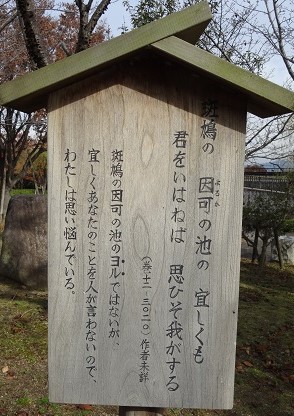 斑鳩の 因可の池の 宜しくも
よるか
君をいはねば 思ひそ我がする
(巻十二 三〇二〇) 作者未詳
斑鳩の因可の池のヨルではないが、
宜しくあなたのことを人が言わないので、
わたしは思い悩んでいる。